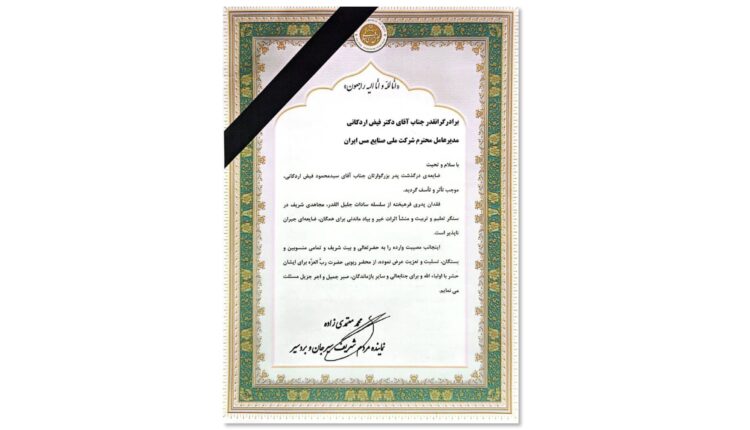 «انّا للّه و انّا الیه راجعون»
برادر گرانقدر جناب آقای دکتر فیض اردکانی
مدیرعامل محترم شرکت ملی صنایع مس ایران
با سلام و تحیت
ضایعه‌ی درگذشت پدر بزرگوارتان جناب آقای سیدمحمود فیض اردکانی،
موجب تأثر و تأسف گردید.
فقدان پدری فرهیخته از سلسله سادات جلیل القدر، مجاهدی شریف در
سنگر تعلیم و تربیت و منشأ اثرات خیر و بیاد ماندنی برای همگان، ضایعه‌ای جبران
ناپذیر است.
اینجانب مصیبت وارده را به حضرتعالی و بیت شریف و تمامی منسوبین و
بستگان، تسلیت و تعزیت عرض نموده، از محضر ربوبی حضرت ربّ العزّه برای ایشان
حشر با اولیاء الله و برای جنابعالی و سایر بازماندگان، صبر جمیل و اجر جزیل مسئلت
می نمایم.
محمد معتمدی زاده
نماینده مردم شریف سیرجان و بردسیر